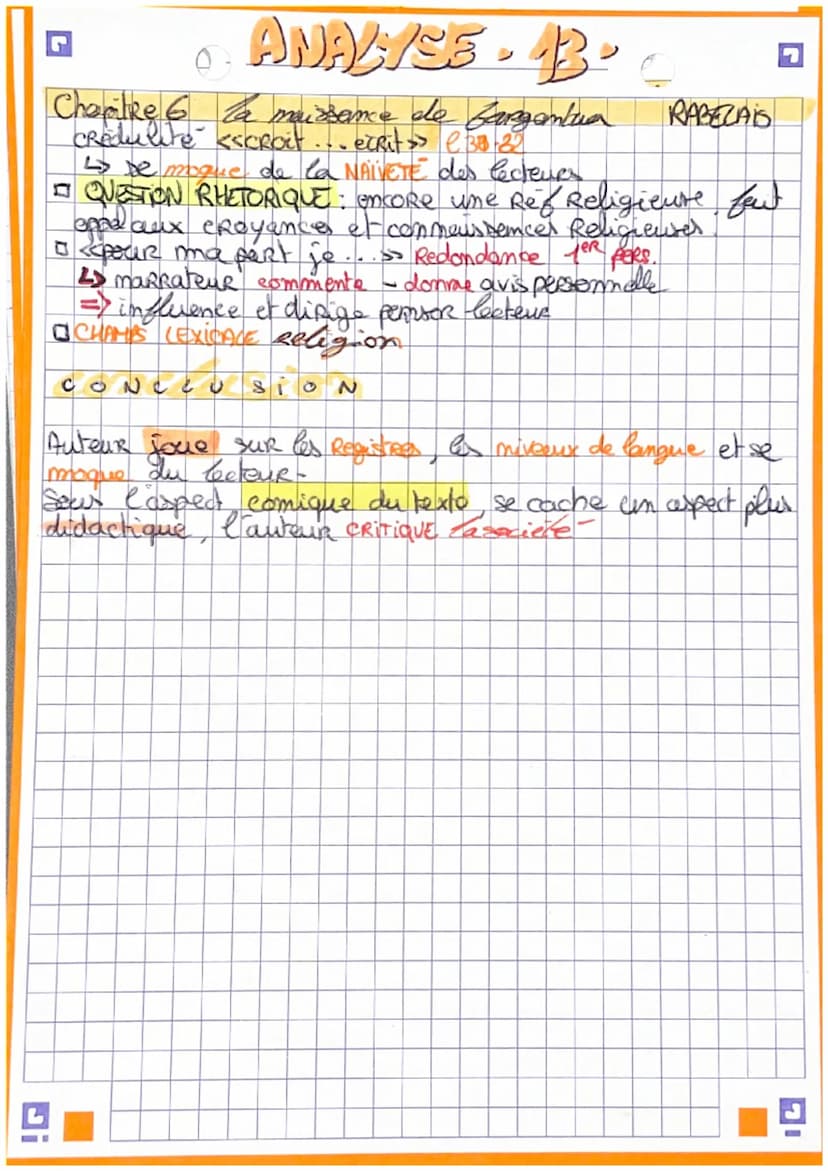 ANALYSE . 13 .
Chapitre 6 la naissance de Gargantua RABELAIS
crédulité <<croit ... écrit>> l 30-32
↳ se moque de la NAÏVETÉ des lecteurs
□ QUESTION RHETORIQUE : encore une Réf Religieuse, fait
appel aux croyances et connaissances Religieuses.
□ <<pour ma part je ... >> Redondance 1ER pers.
↳ narrateur commente - donne avis personnelle
=> influence et dirige penser lecteur
□ CHAMPS LEXICALE religion
CONCLUSION
Auteur joue sur les Registres, les niveaux de langue et se
moque du lecteur-
Sous l'aspect comique du texte, se cache un aspect plus
didactique, l'auteur CRITIQUE la société-